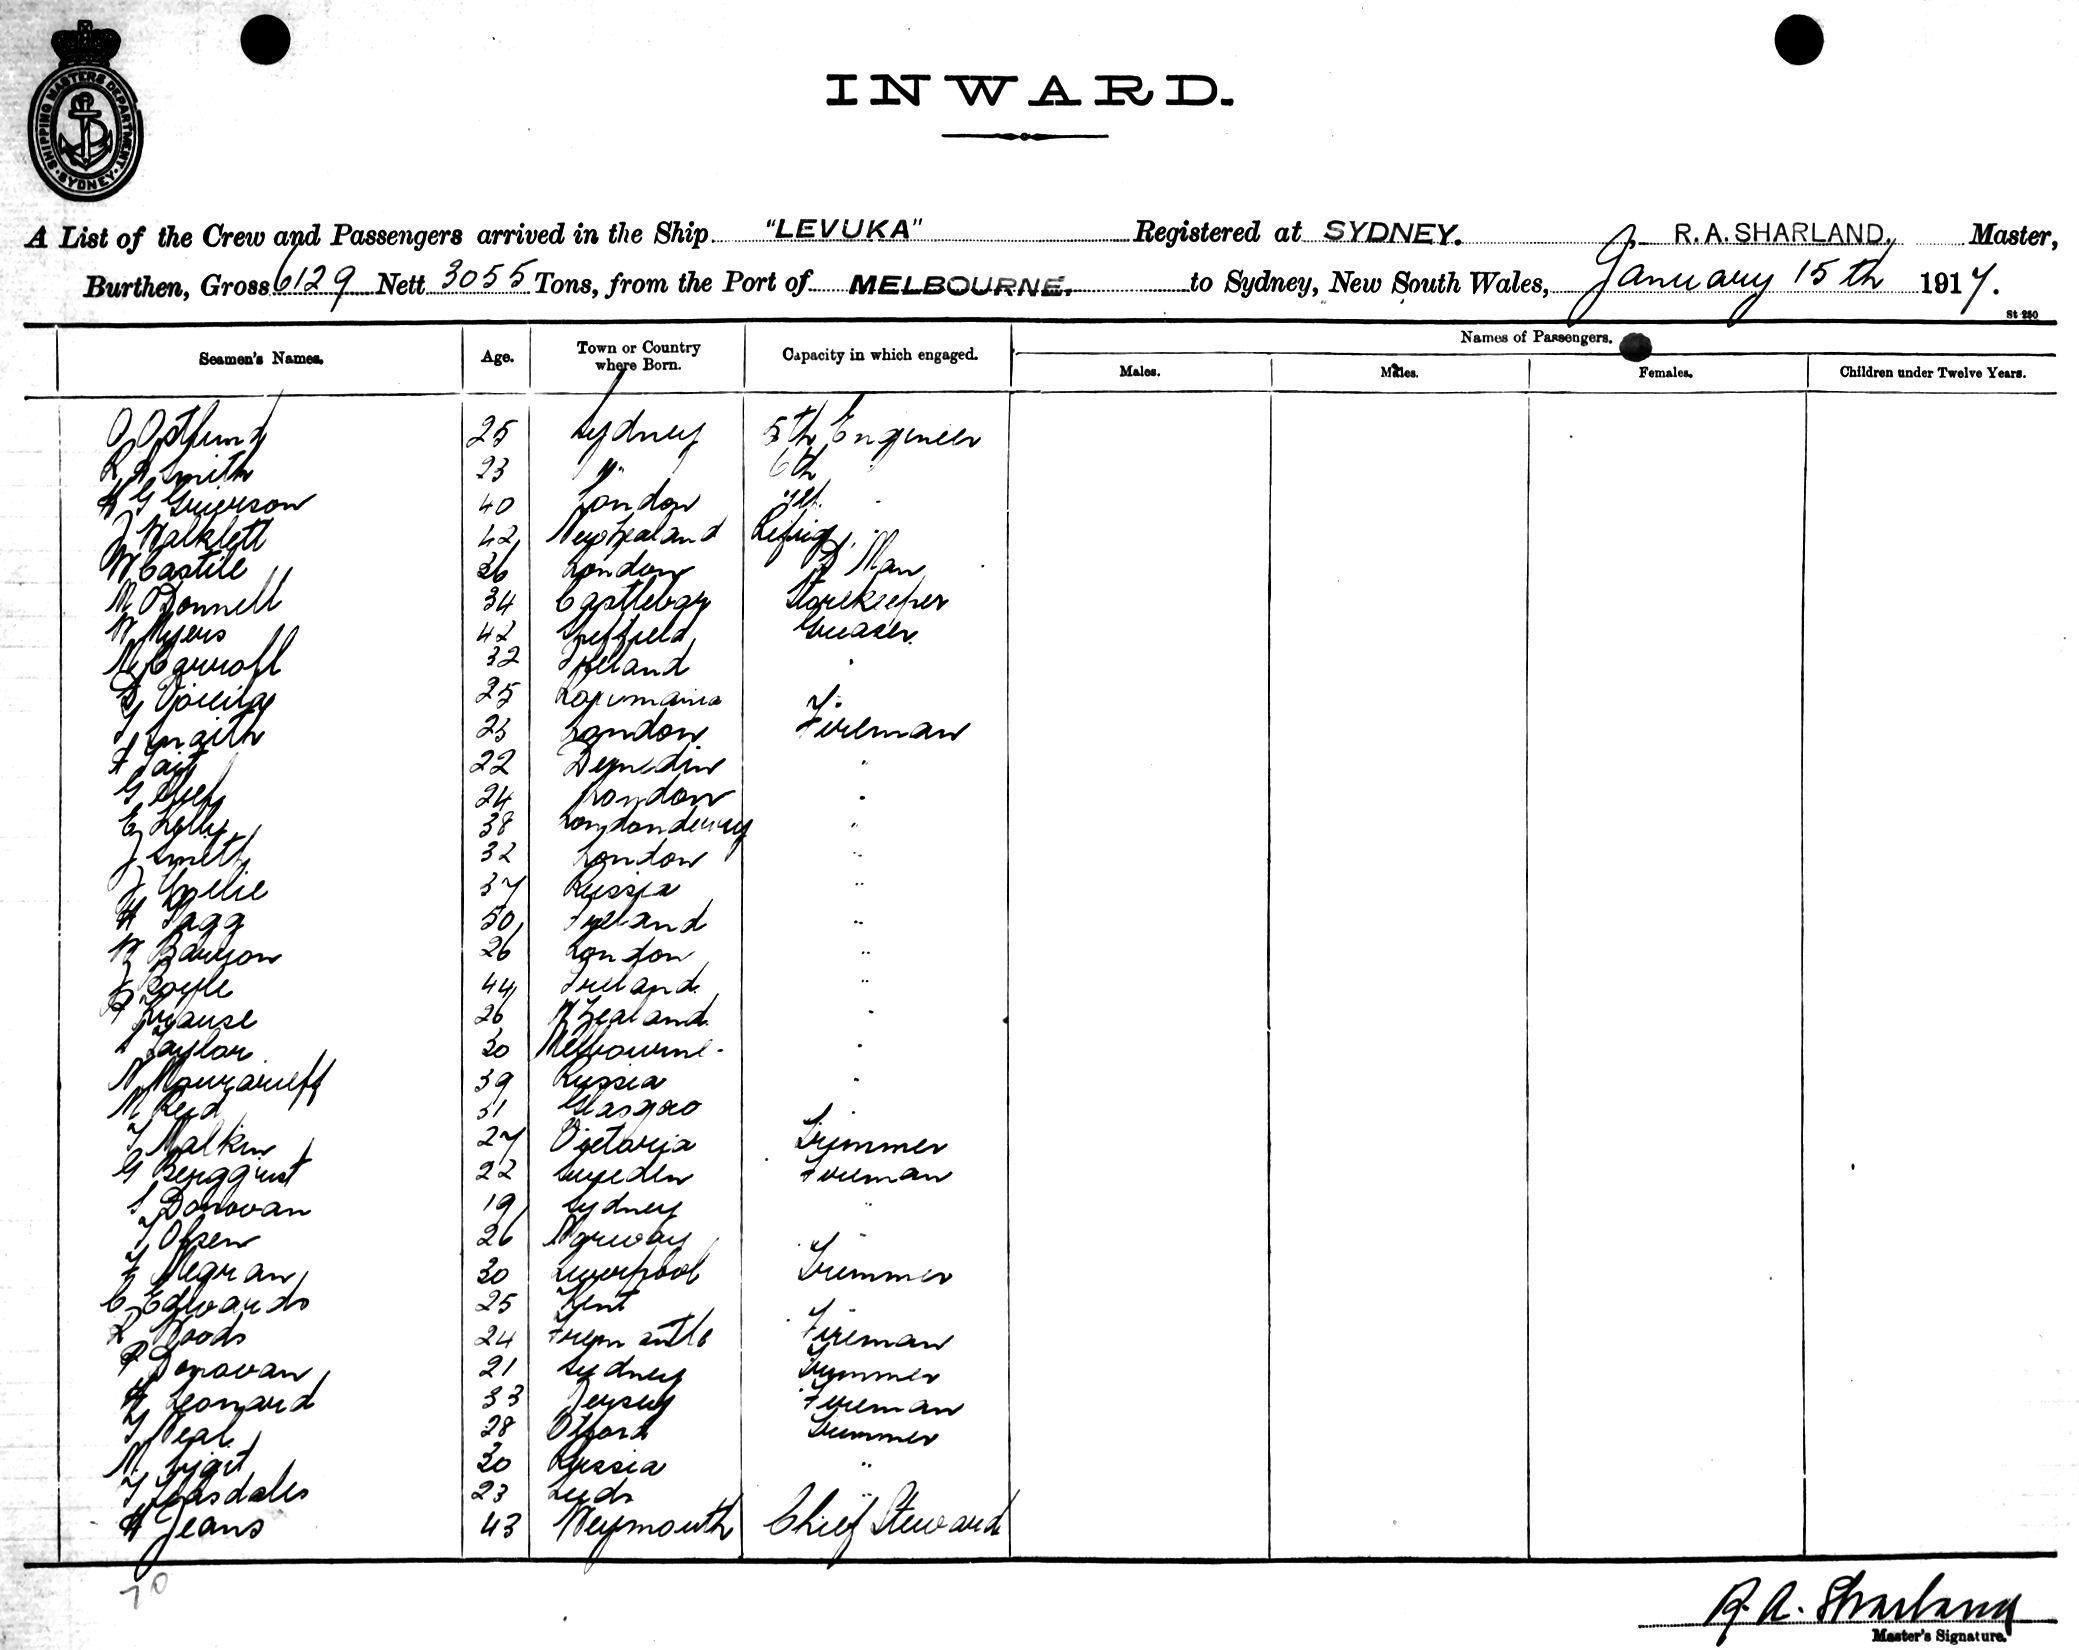 SHIPPING MASTERS DEPARTMENT
SYDNEY
INWARD.
A List of the Crew and Passengers arrived in the Ship "LEVUKA" Registered at SYDNEY. R. A. SHARLAND. Master,
Burthen, Gross 6129 Nett 3055 Tons, from the Port of MELBOURNE. to Sydney, New South Wales, January 15th 1917.
St 250
Seamen's Names. Age. Town or Country where Born. Capacity in which engaged. Names of Passengers.
Males. Males. Females. Children under Twelve Years.
25 Sydney 5th Engineer
Smith 23 " 6th "
H G Grierson 40 London "
J Walklett 42 New Zealand Refrig "
W Castile 26 London Man
M O'Donnell 34 Castlebar Storekeeper
W Myers 42 Sheffield Greaser
Carroll 32 Ireland "
25
Smith 23 London Fireman
Tait 22 Dunedin "
G 24 London "
E Kelly 38 Londonderry "
J Smith 32 London "
J 37 Russia "
H Fagg 50 Ireland "
W Barron 26 London "
J Boyle 44 Ireland "
Krause 26 N Zealand "
Taylor 30 Melbourne "
39 Russia "
M Reid 31 Glasgow "
Malkin 27 Victoria Trimmer
G Bergquist 22 Sweden Fireman
S Donovan 19 Sydney "
T Olsen 26 Norway "
Megran 30 Liverpool Trimmer
C Edwards 25 Kent "
R Woods 24 Fremantle Fireman
P Donovan 21 Sydney Trimmer
H Leonard 33 Jersey Fireman
Neal 28 Otford Trimmer
30 Russia "
Teasdales 23 Leeds "
H Jeans 43 Weymouth Chief Steward
70
R. A. Sharland
Master's Signature.